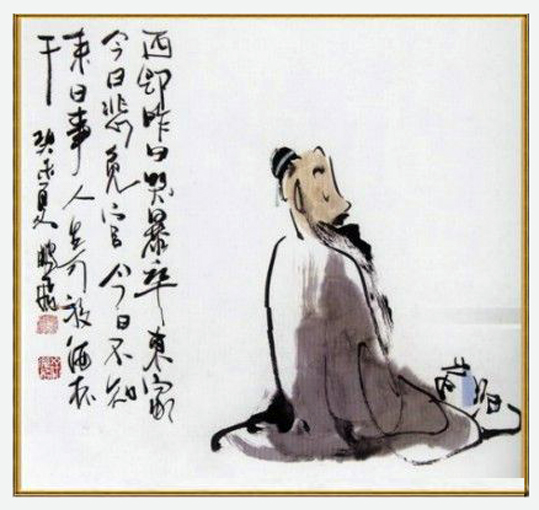 西邻昨日哭暴卒東家
今日悲免官今日不知
来日事人生可放酒杯
干
癸未夏鹏飛